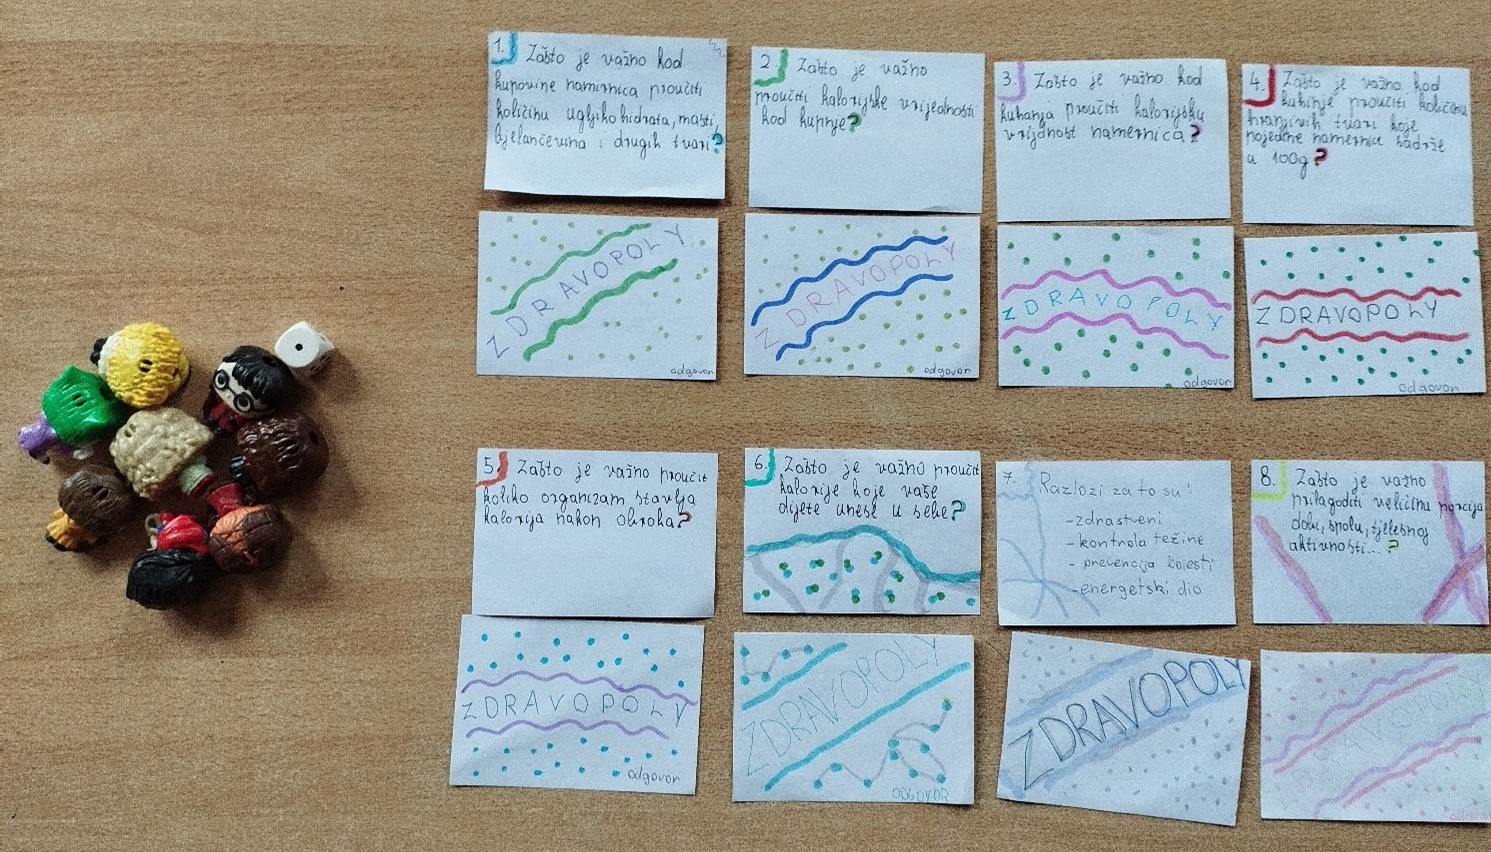 1. Zašto je važno kod
kupovine namirnica proučiti
količinu ugljikohidrata, masti,
bjelančevina i drugih tvari?
2. Zašto je važno
proučiti kalorijske vrijednosti
kod kupnje?
3. Zašto je važno kod
kuhanja proučiti kalorijsku
vrijdnost namirnica?
4. Zašto je važno kod
kuhinje proučiti količinu
hranjivih tvari koje
pojedine namirnice sadrže
u 100g?
ZDRAVOPOLY
odgovor
ZDRAVOPOLY
odgovor
ZDRAVOPOLY
odgovor
ZDRAVOPOLY
odgovor
5. Zašto je važno proučit
koliko organizam stavlja
kalorija nakon obroka?
6. Zašto je važno proučit
kalorije koje vaše
dijete unese u sebe?
7. Razlozi za to su:
-zdrastveni
-kontrola težine
- prevencija bolesti
-energetski dio
8. Zašto je važno
prilagoditi veličinu porcija
dobu, spolu, tjelesnoj
aktivnosti...?
ZDRAVOPOLY
odgovor
ZDRAVOPOLY
ODGOVOR
ZDRAVOPOLY
ZDRAVOPOLY
odgovor